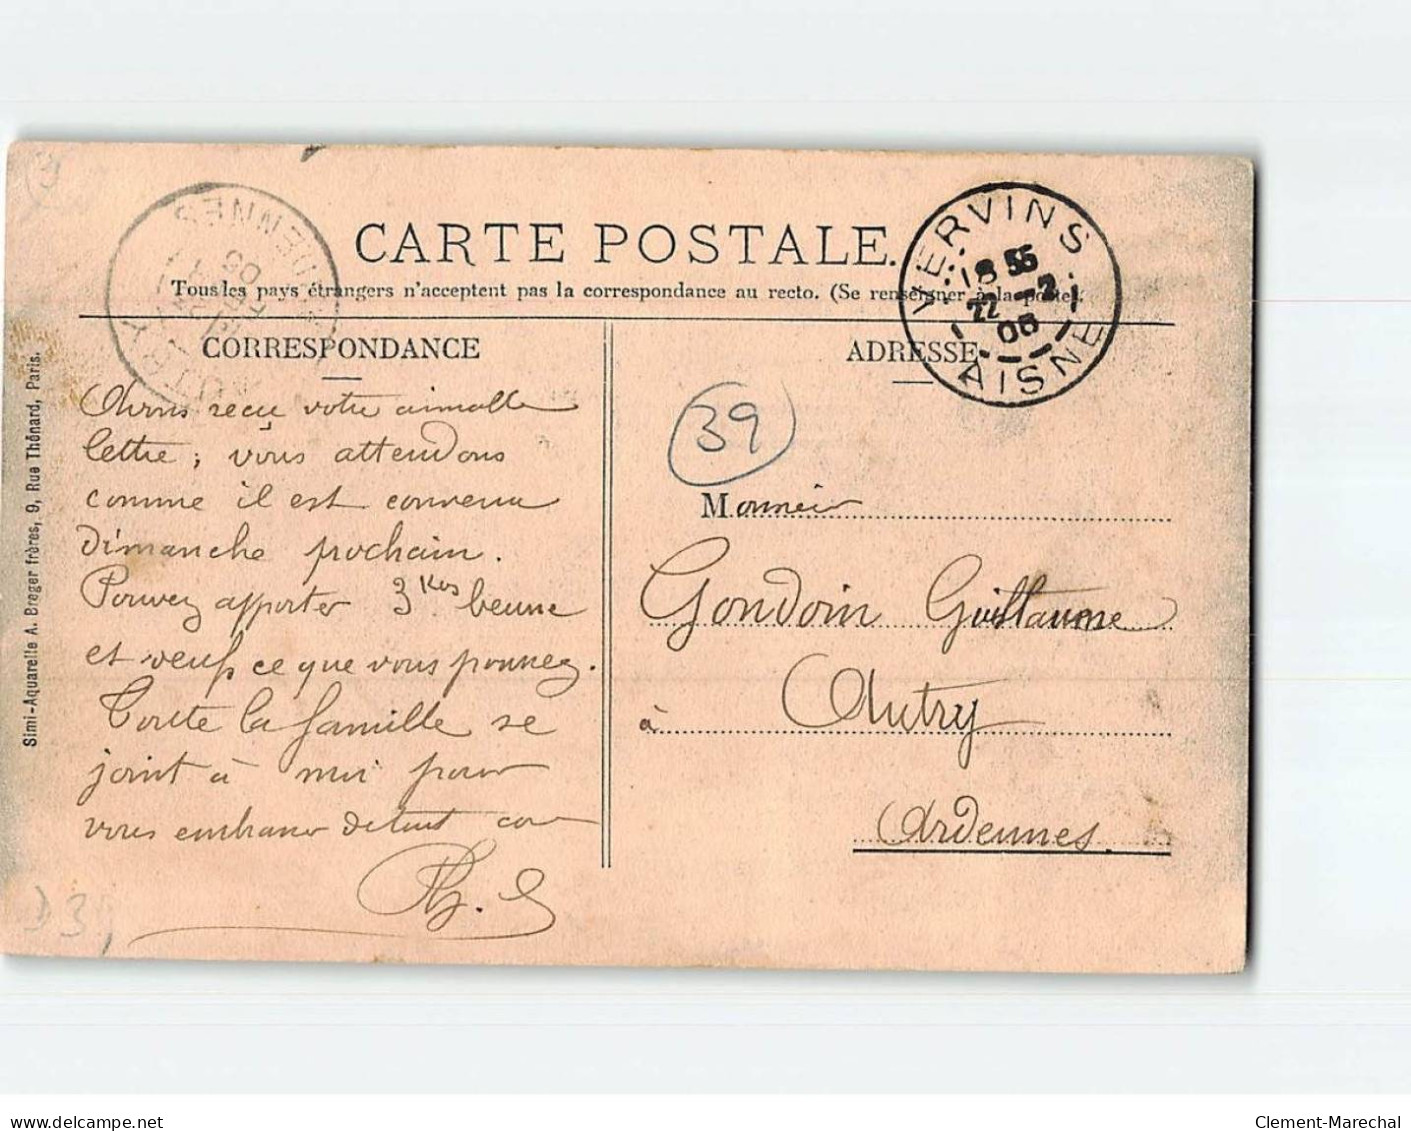 CARTE POSTALE.
Tous les pays étrangers n'acceptent pas la correspondance au recto. (Se renseigner à la poste).
CORRESPONDANCE
Avons reçu votre aimable
lettre, vous attendons
comme il est convenu
Dimanche prochain.
Pouvez apporter 3 Kos beurre
et oeufs ce que vous pourrez.
Toute la famille se
joint à moi pour
vous embrasser de tout coeur
ADRESSE
VERVINS
18 55
22 -2
06
AISNE
39
Monsieur
Gondoin Guillaume
à Autry
Ardennes.
ARDENNES
AUTRY
D39
Simi-Aquarelle A. Breger frères, 9, Rue Thénard, Paris.
www.delcampe.net
Clement-Marechal